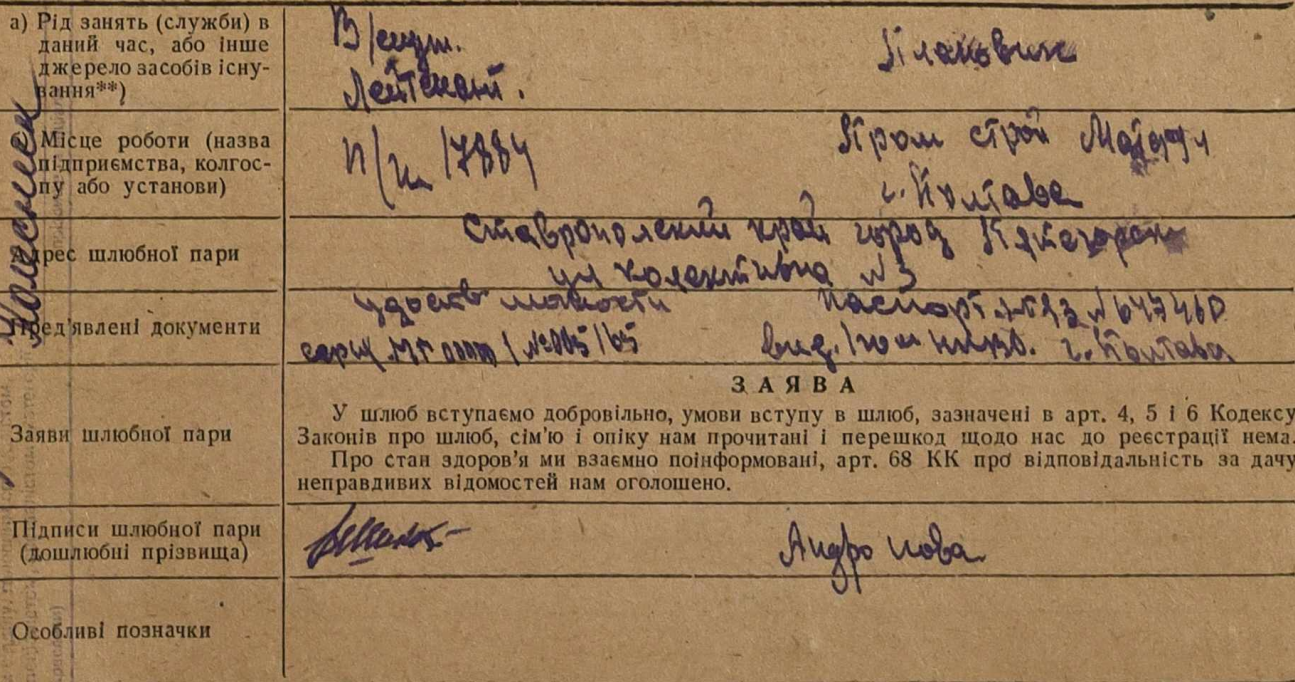 а) Рід занять (служби) в
даний час, або інше
джерело засобів існу-
вання**)
В/служ.
Лейтенант.
Плановик
Місце роботи (назва
підприємства, колгос-
пу або установи)
П/п 17884
Пром строй Матерял
г. Полтава
Адрес шлюбної пари
Ставрополский край город Пятегорск
ул колективна №3
Пред'явлені документи
удоств личности
серия №005/65
Паспорт № 647460
вид. г. Полтава
Заяви шлюбної пари
ЗАЯВА
У шлюб вступаємо добровільно, умови вступу в шлюб, зазначені в арт. 4, 5 і 6 Кодексу
Законів про шлюб, сім'ю і опіку нам прочитані і перешкод щодо нас до реєстрації нема.
Про стан здоров'я ми взаємно поінформовані, арт. 68 КК про відповідальність за дачу
неправдивих відомостей нам оголошено.
Підписи шлюбної пари
(дошлюбні прізвища)
Андронова
Особливі позначки
Колесник